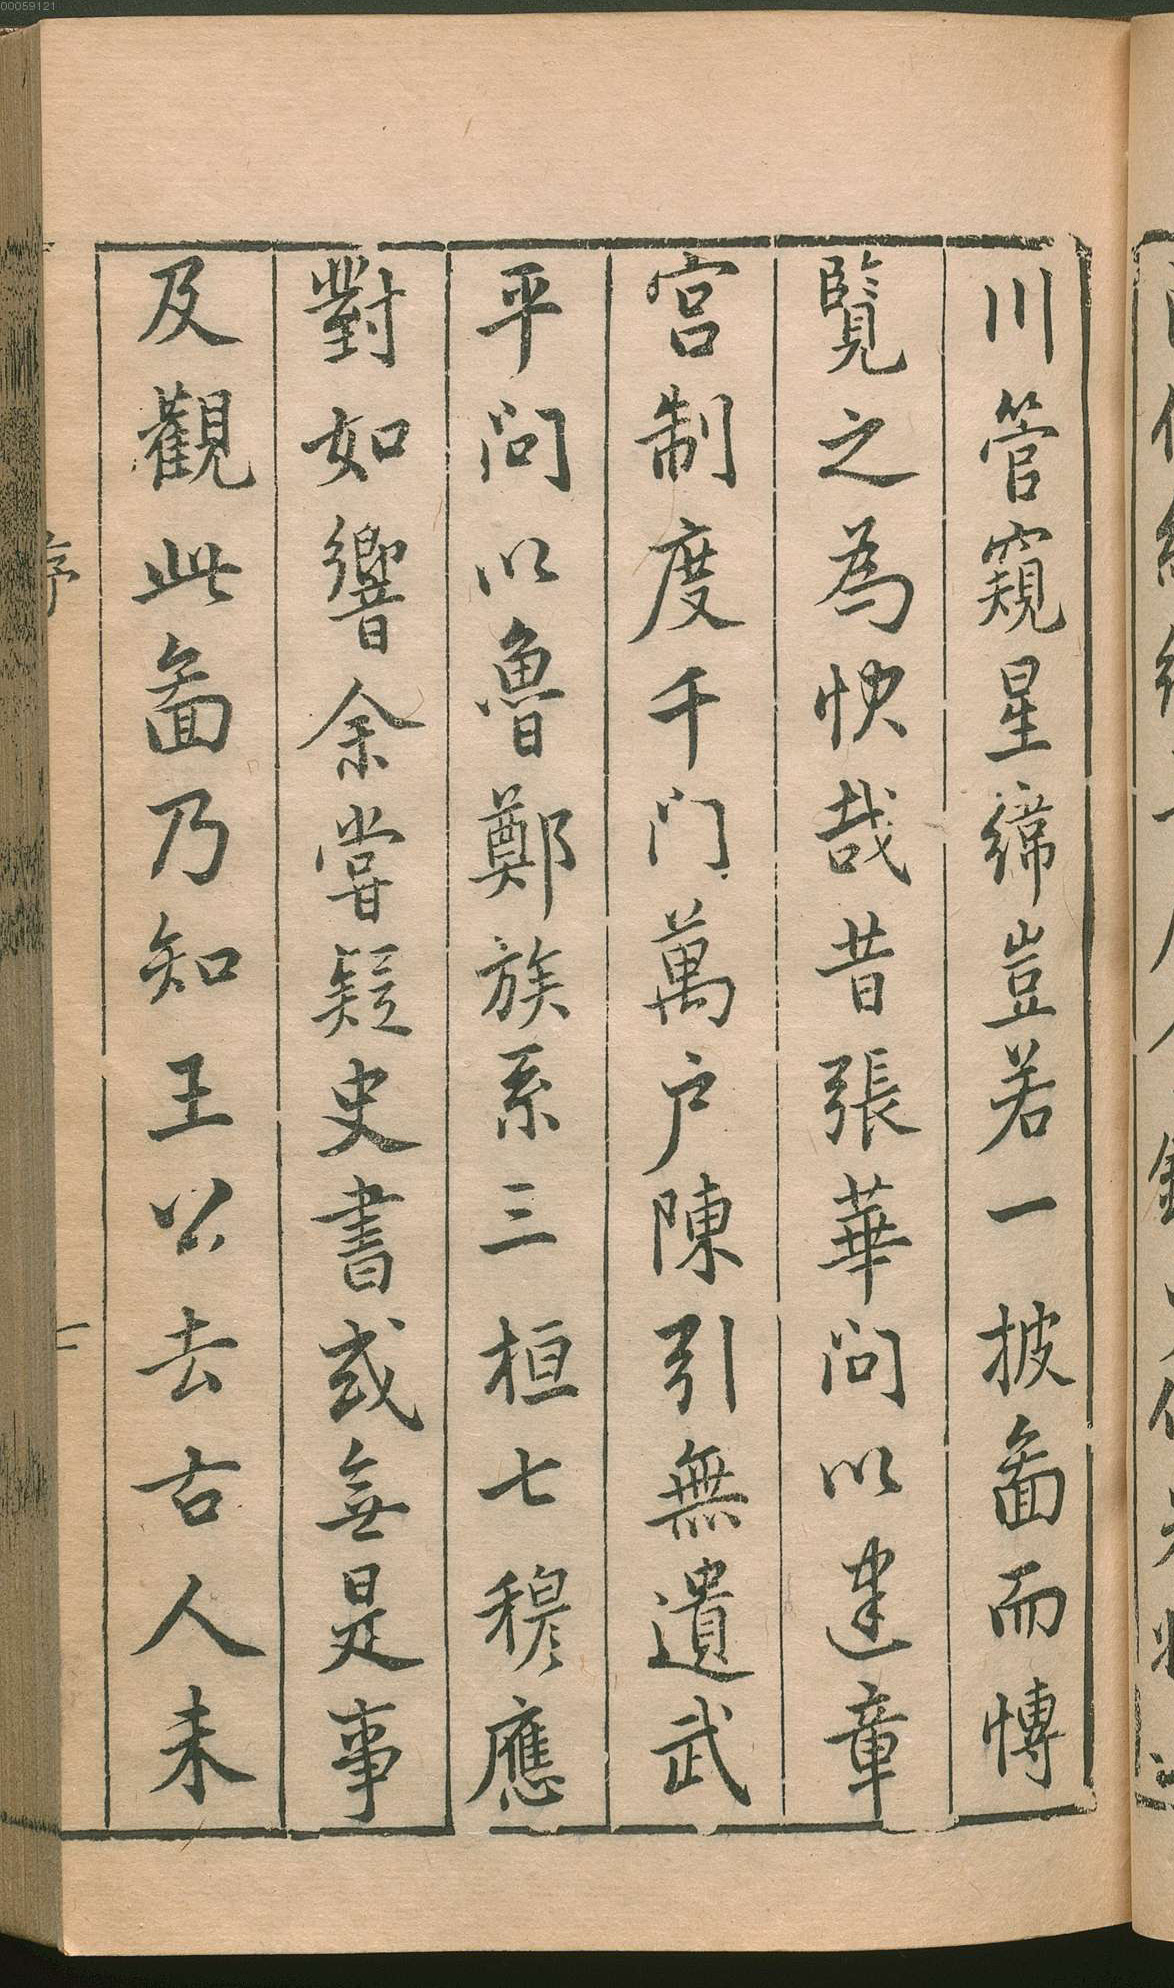 00059121
川管窺星緯豈若一披啚而博
覽之為快哉昔張華問以建章
宮制度千門萬户陳引無遺武
平問以魯鄭族系三桓七穆應
對如響余嘗疑史書或無是事
及觀此啚乃知王公去古人未
序